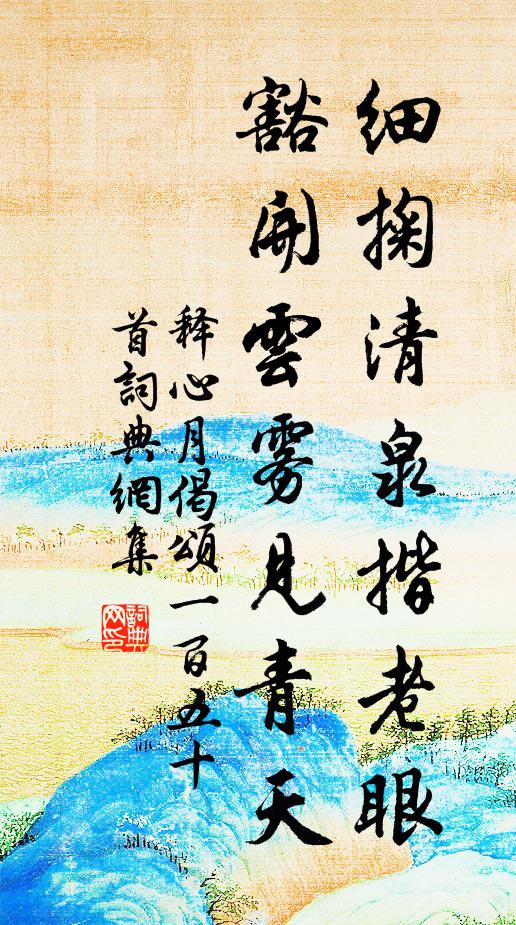 细掬清泉揩老眼
豁开雲雾見青天
释心月偈颂一百五十
首詞典網集
詞典
网印